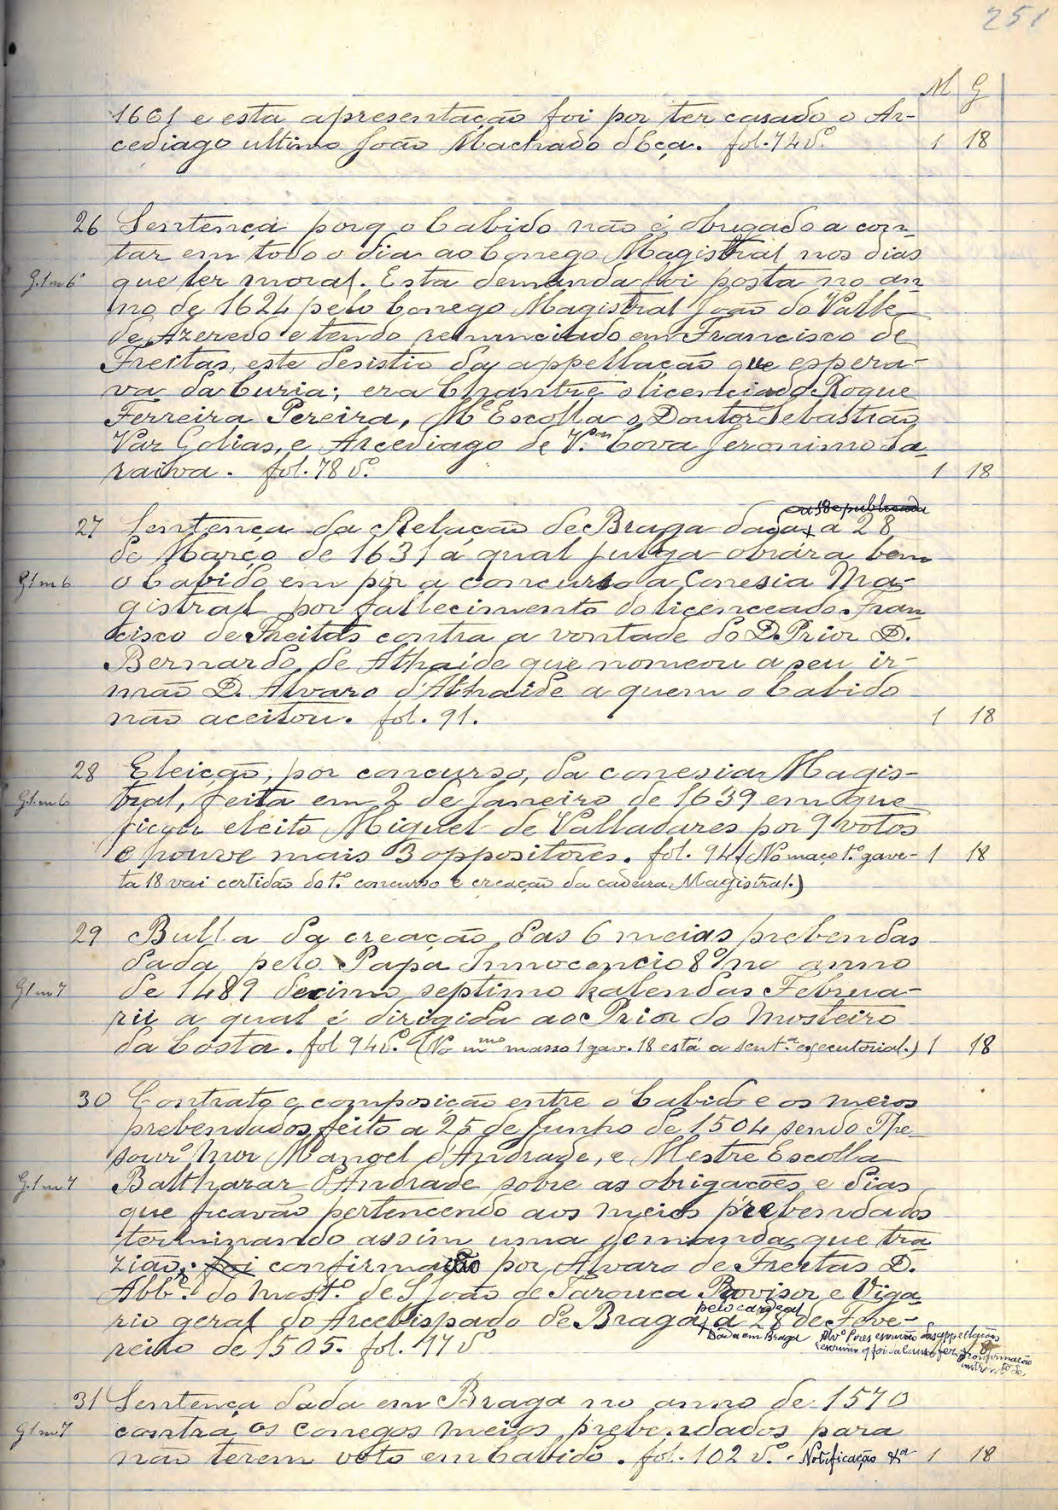 251
M G
1601 e esta apresentação foi por ter casado o Ar-
cediago ultimo João Machado d'Eça. fol. 74 vº. 1 18
26 Sentença porq o Cabido não é obrigado a con-
tar em todo o dia ao Conego Magistral nos dias
G.1m6 que ler moral. Esta demanda foi posta no an-
no de 1624 pelo Conego Magistral João do Valle
de Azeredo e tendo renunciado em Francisco de
Freitas, este desistio da appellação que espera-
va da Curia; era Chantre o licenciado Roque
Ferreira Pereira, Mº Escolla o Doutor Sebastião
Vaz Golias, e Arcediago de Vª Cova Jeronimo Sa-
raiva. fol. 78 vº. 1 18
27 Sentença da Relação de Braga dada a 28
de Março de 1631 á qual julga obrára bem
G1m6 o Cabido em pôr a concurso a Conesia Ma-
gistral por fallecimento do licenceado Fran-
cisco de Freitas contra a vontade do D. Prior D.
Bernardo de Athaide que nomeou a seu ir-
mão D. Alvaro d'Athaide a quem o Cabido
não aceitou. fol. 91. 1 18
28 Eleição, por concurso, da conesia Magis-
G.1.m6 tral, feita em 2 de Janeiro de 1639 em que
ficou eleito Miguel de Valladares por 9 votos
e houve mais 3 oppositores. fol. 94 (No maço 1º gave- 1 18
ta 18 vai certidão do 1º concurso e creação da cadeira Magistral.)
29 Bulla da creação das 6 meias prebendas
dada pelo Papa Innocencio 8º no anno
G1m7 de 1489 decimo septimo kalendas Februa-
rii a qual é dirigida ao Prior do Mosteiro
da Costa. fol 94 vº. (No mmo masso 1 gav. 18 está a sentª executorial.) 1 18
30 Contrato e composição entre o Cabido e os meios
prebendados feito a 25 de Junho de 1504 sendo The-
sourº mor Manoel d'Andrade, e Mestre Escolla
G.1m7 Balthazar d'Andrade sobre as obrigacões e dias
que ficavão pertencendo aos meios prebendados
terminando assim uma demanda que tra-
zião; foi confirmação por Alvaro de Freitas D.
Abbe. do Mostº. de S João de Tarouca Provisor e Viga-
rio geral do Arcebispado de Braga, a 28 de Feve-
pelo cardeal
Dada em Braga
reiro de 1505. fol. 47 vº
31 Sentença dada em Braga no anno de 1570
G1m7 contra os conegos meios prebendados para
não terem voto em Cabido. fol. 102 vº. - Notificação &ª 1 18